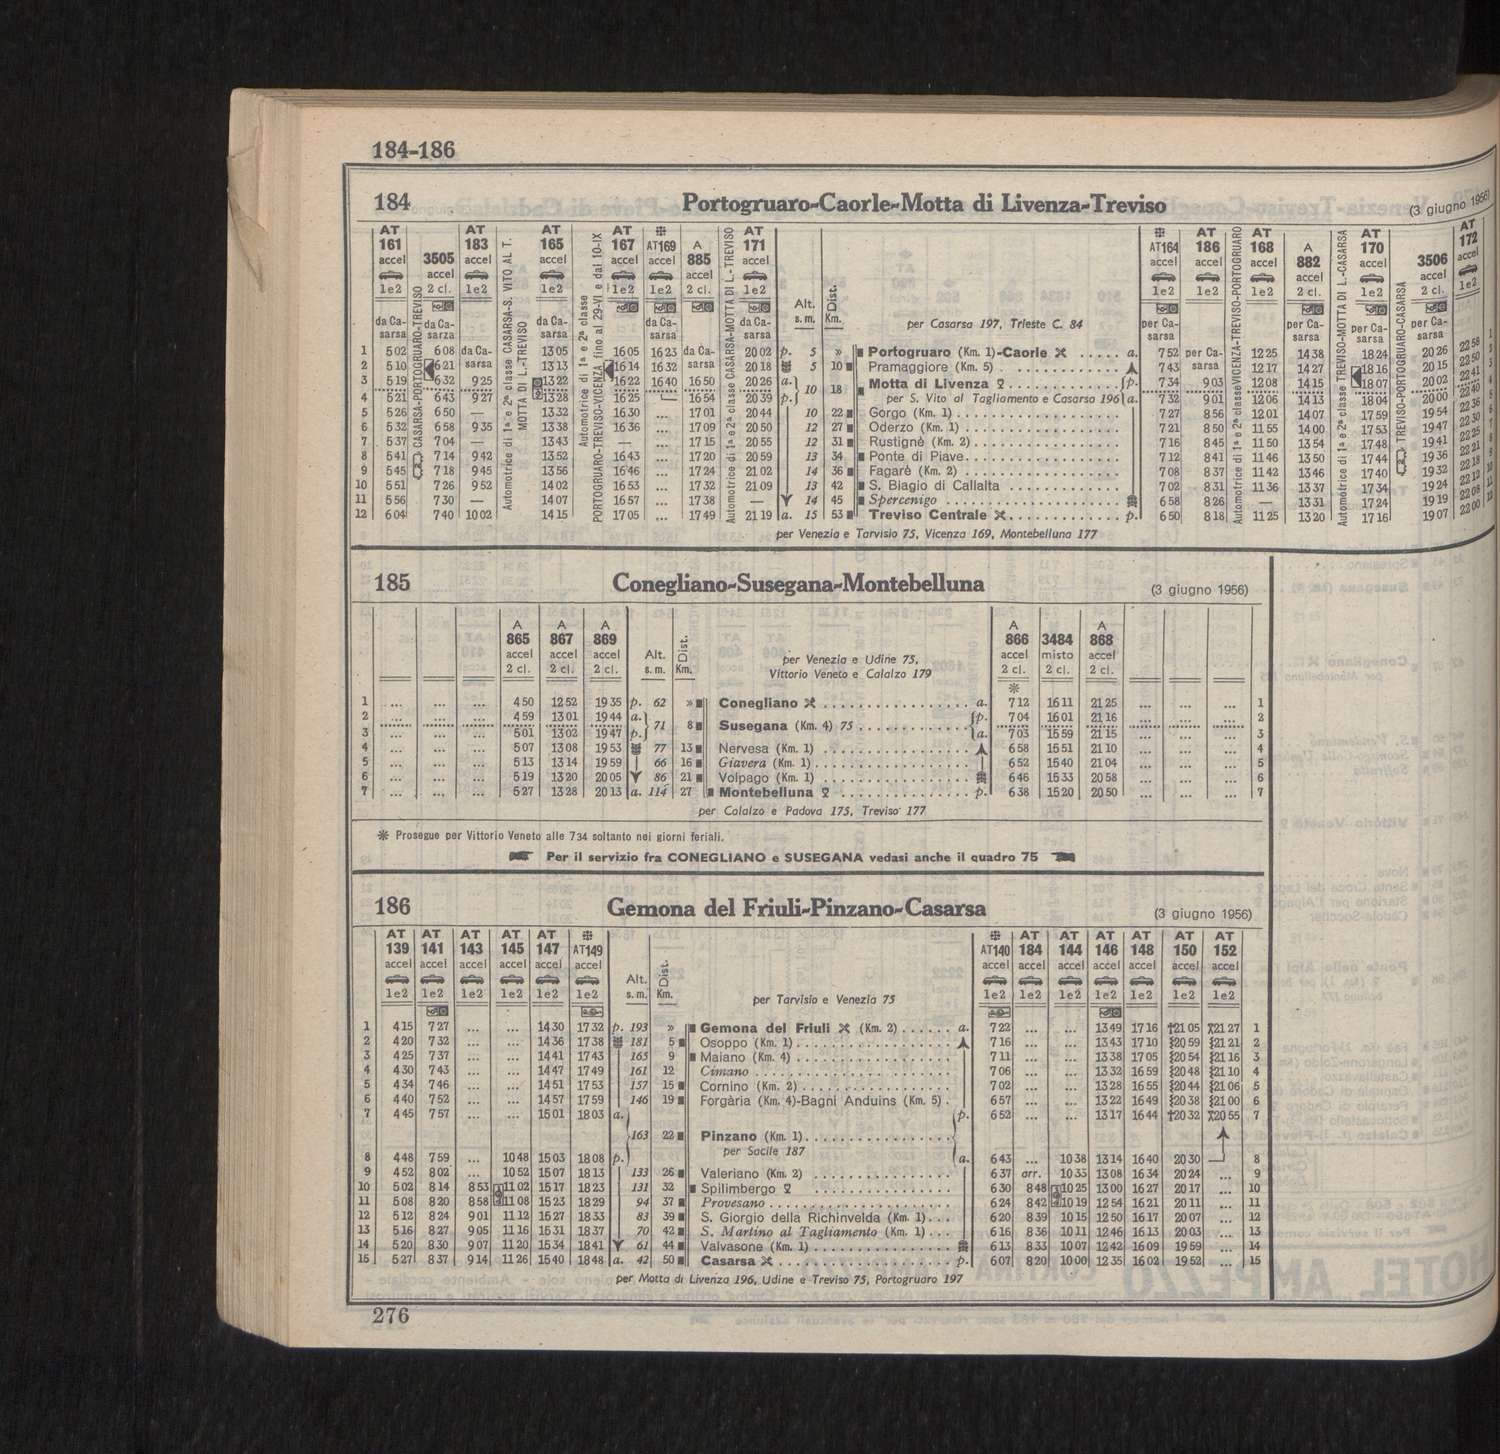 184-186
184 Portogruaro-Caorle-Motta di Livenza-Treviso (3 giugno 1956)
AT 161 accel 1e2 da Casarsa
3505 accel 2 cl. da Casarza
AT 183 accel 1e2
AT 165 accel 1e2 da Casarsa
AT 167 accel 1e2
AT169 accel 1e2 da Casarsa
A 885 accel 2 cl.
AT 171 accel 1e2 da Casarsa
Alt. s. m.
Dist. Km.
per Casarsa 197, Trieste C. 84
AT164 accel 1e2 per Casarsa
AT 186 accel 1e2
AT 168 accel 1e2
A 882 accel 2 cl. per Casarsa
AT 170 accel 1e2 per Casarsa
3506 accel 2 cl. per Casarsa
AT 172 1e2
CASARSA-PORTOGRUARO-TREVISO
Automotrice di 1ª e 2ª classe CASARSA-S. VITO AL T. MOTTA DI L.-TREVISO
Automotrice di 1ª e 2ª classe PORTOGRUARO-TREVISO-VICENZA fino al 29-VI e dal 10-IX
Automotrice di 1ª e 2ª classe CASARSA-MOTTA DI L.-TREVISO
Automotrice di 1ª e 2ª classe VICENZA-TREVISO-PORTOGRUARO
Automotrice di 1ª e 2ª classe TREVISO-MOTTA DI L.-CASARSA
TREVISO-PORTOGRUARO-CASARSA
1 5 02 6 08 da Ca- 13 05 16 05 16 23 da Ca- 20 02 p. 5 » Portogruaro (Km. 1)-Caorle a. 7 52 per Ca- 12 25 14 38 18 24 20 26 22 58 1
2 5 10 6 21 sarsa 13 13 16 14 16 32 sarsa 20 18 5 10 Pramaggiore (Km. 5) 7 43 sarsa 12 17 14 27 18 16 20 15 22 50 2
3 5 19 6 32 9 25 13 22 16 22 16 40 16 50 20 26 a. 10 18 Motta di Livenza p. 7 34 9 03 12 08 14 15 18 07 20 02 22 41 3
4 5 21 6 43 9 27 13 28 16 25 16 54 20 39 p. per S. Vito al Tagliamento e Casarsa 196 a. 7 32 9 01 12 06 14 13 18 04 20 00 22 40 4
5 5 26 6 50 — 13 32 16 30 ... 17 01 20 44 10 22 Gorgo (Km. 1) 7 27 8 56 12 01 14 07 17 59 19 54 22 36
6 5 32 6 58 9 35 13 38 16 36 ... 17 09 20 50 12 27 Oderzo (Km. 1) 7 21 8 50 11 55 14 00 17 53 19 47 22 30
7 5 37 7 04 — 13 43 — ... 17 15 20 55 12 31 Rustignè (Km. 2) 7 16 8 45 11 50 13 54 17 48 19 41 22 25
8 5 41 7 14 9 42 13 52 16 43 ... 17 20 20 59 13 34 Ponte di Piave 7 12 8 41 11 46 13 50 17 44 19 36 22 21
9 5 45 7 18 9 45 13 56 16 46 ... 17 24 21 02 14 36 Fagarè (Km. 2) 7 08 8 37 11 42 13 46 17 40 19 32 22 18
10 5 51 7 26 9 52 14 02 16 53 ... 17 32 21 09 13 42 S. Biagio di Callalta 7 02 8 31 11 36 13 37 17 34 19 24 22 12
11 5 56 7 30 — 14 07 16 57 ... 17 38 — 14 45 Spercenigo 6 58 8 26 — 13 31 17 24 19 19 22 08
12 6 04 7 40 10 02 14 15 17 05 ... 17 49 21 19 a. 15 53 Treviso Centrale p. 6 50 8 18 11 25 13 20 17 16 19 07 22 00
per Venezia e Tarvisio 75, Vicenza 169, Montebelluna 177
185 Conegliano-Susegana-Montebelluna (3 giugno 1956)
A 865 accel 2 cl.
A 867 accel 2 cl.
A 869 accel 2 cl.
Alt. s. m.
Dist. Km.
per Venezia e Udine 75,
Vittorio Veneto e Calalzo 179
A 866 accel 2 cl. ※
3484 misto 2 cl.
A 868 accel 2 cl.
1 ... ... ... 4 50 12 52 19 35 p. 62 » Conegliano a. 7 12 16 11 21 25 ... ... ... 1
2 ... ... ... 4 59 13 01 19 44 a. 71 8 Susegana (Km. 4) 75 p. 7 04 16 01 21 16 ... ... ... 2
3 ... ... ... 5 01 13 02 19 47 p. a. 7 03 15 59 21 15 ... ... ... 3
4 ... ... ... 5 07 13 08 19 53 77 13 Nervesa (Km. 1) 6 58 15 51 21 10 ... ... ... 4
5 ... ... ... 5 13 13 14 19 59 66 16 Giavera (Km. 1) 6 52 15 40 21 04 ... ... ... 5
6 ... ... ... 5 19 13 20 20 05 86 21 Volpago (Km. 1) 6 46 15 33 20 58 ... ... ... 6
7 ... ... ... 5 27 13 28 20 13 a. 114 27 Montebelluna p. 6 38 15 20 20 50 ... ... ... 7
per Calalzo e Padova 175, Treviso 177
※ Prosegue per Vittorio Veneto alle 7 34 soltanto nei giorni feriali.
Per il servizio fra CONEGLIANO e SUSEGANA vedasi anche il quadro 75
186 Gemona del Friuli-Pinzano-Casarsa (3 giugno 1956)
AT 139 accel 1e2
AT 141 accel 1e2
AT 143 accel 1e2
AT 145 accel 1e2
AT 147 accel 1e2
AT149 accel 1e2
Alt. s. m.
Dist. Km.
per Tarvisio e Venezia 75
AT140 accel 1e2
AT 184 accel 1e2
AT 144 accel 1e2
AT 146 accel 1e2
AT 148 accel 1e2
AT 150 accel 1e2
AT 152 accel 1e2
1 4 15 7 27 ... ... 14 30 17 32 p. 193 » Gemona del Friuli (Km. 2) a. 7 22 ... ... 13 49 17 16 21 05 21 27 1
2 4 20 7 32 ... ... 14 36 17 38 181 5 Osoppo (Km. 1) 7 16 ... ... 13 43 17 10 20 59 21 21 2
3 4 25 7 37 ... ... 14 41 17 43 165 9 Maiano (Km. 4) 7 11 ... ... 13 38 17 05 20 54 21 16 3
4 4 30 7 43 ... ... 14 47 17 49 161 12 Cimano 7 06 ... ... 13 32 16 59 20 48 21 10 4
5 4 34 7 46 ... ... 14 51 17 53 157 15 Cornino (Km. 2) 7 02 ... ... 13 28 16 55 20 44 21 06 5
6 4 40 7 52 ... ... 14 57 17 59 146 19 Forgària (Km. 4)-Bagni Anduins (Km. 5) 6 57 ... ... 13 22 16 49 20 38 21 00 6
7 4 45 7 57 ... ... 15 01 18 03 a. p. 6 52 ... ... 13 17 16 44 20 32 20 55 7
163 22 Pinzano (Km. 1)
per Sacile 187
8 4 48 7 59 ... 10 48 15 03 18 08 p. a. 6 43 ... 10 38 13 14 16 40 20 30 8
9 4 52 8 02 ... 10 52 15 07 18 13 133 26 Valeriano (Km. 2) 6 37 arr. 10 33 13 08 16 34 20 24 ... 9
10 5 02 8 14 8 53 11 02 15 17 18 23 131 32 Spilimbergo 6 30 8 48 10 25 13 00 16 27 20 17 ... 10
11 5 08 8 20 8 58 11 08 15 23 18 29 94 37 Provesano 6 24 8 42 10 19 12 54 16 21 20 11 ... 11
12 5 12 8 24 9 01 11 12 15 27 18 33 83 39 S. Giorgio della Richinvelda (Km. 1) 6 20 8 39 10 15 12 50 16 17 20 07 ... 12
13 5 16 8 27 9 05 11 16 15 31 18 37 70 42 S. Martino al Tagliamento (Km. 1) 6 16 8 36 10 11 12 46 16 13 20 03 ... 13
14 5 20 8 30 9 07 11 20 15 34 18 41 61 44 Valvasone (Km. 1) 6 13 8 33 10 07 12 42 16 09 19 59 ... 14
15 5 27 8 37 9 14 11 26 15 40 18 48 a. 42 50 Casarsa p. 6 07 8 20 10 00 12 35 16 02 19 52 ... 15
per Motta di Livenza 196, Udine e Treviso 75, Portogruaro 197
276